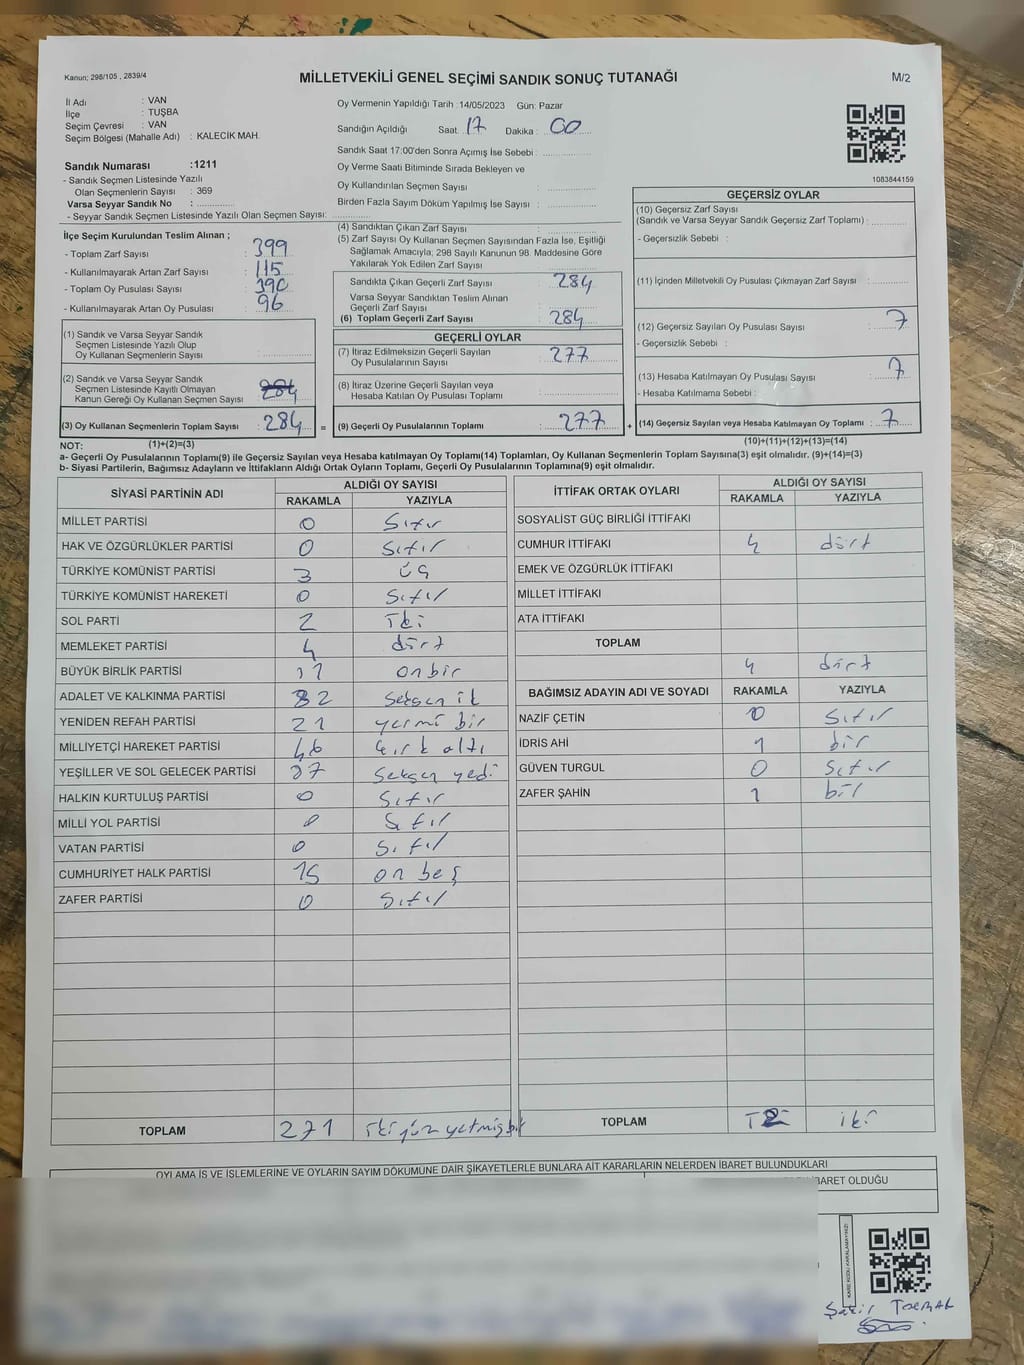 Kanun; 298/105 , 2839/4
MİLLETVEKİLİ GENEL SEÇİMİ SANDIK SONUÇ TUTANAĞI
M/2
İl Adı : VAN
İlçe : TUŞBA
Seçim Çevresi : VAN
Seçim Bölgesi (Mahalle Adı) : KALECİK MAH.
Sandık Numarası :1211
- Sandık Seçmen Listesinde Yazılı
Olan Seçmenlerin Sayısı : 369
Varsa Seyyar Sandık No :
- Seyyar Sandık Seçmen Listesinde Yazılı Olan Seçmen Sayısı:
Oy Vermenin Yapıldığı Tarih :14/05/2023 Gün: Pazar
Sandığın Açıldığı Saat: 17 Dakika : 00
Sandık Saat 17:00'den Sonra Açımış İse Sebebi :
Oy Verme Saati Bitiminde Sırada Bekleyen ve
Oy Kullandırılan Seçmen Sayısı :
Birden Fazla Sayım Döküm Yapılmış İse Sayısı :
1083844159
İlçe Seçim Kurulundan Teslim Alınan ;
- Toplam Zarf Sayısı : 399
- Kullanılmayarak Artan Zarf Sayısı : 115
- Toplam Oy Pusulası Sayısı : 390
- Kullanılmayarak Artan Oy Pusulası : 96
(1) Sandık ve Varsa Seyyar Sandık
Seçmen Listesinde Yazılı Olup
Oy Kullanan Seçmenlerin Sayısı :
(2) Sandık ve Varsa Seyyar Sandık
Seçmen Listesinde Kayıtlı Olmayan
Kanun Gereği Oy Kullanan Seçmen Sayısı : 284
(3) Oy Kullanan Seçmenlerin Toplam Sayısı : 284 =
(1)+(2)=(3)
(4) Sandıktan Çıkan Zarf Sayısı :
(5) Zarf Sayısı Oy Kullanan Seçmen Sayısından Fazla İse, Eşitliği
Sağlamak Amacıyla; 298 Sayılı Kanunun 98. Maddesine Göre
Yakılarak Yok Edilen Zarf Sayısı :
Sandıkta Çıkan Geçerli Zarf Sayısı : 284
Varsa Seyyar Sandıktan Teslim Alınan
Geçerli Zarf Sayısı :
(6) Toplam Geçerli Zarf Sayısı : 284
GEÇERLİ OYLAR
(7) İtiraz Edilmeksizin Geçerli Sayılan
Oy Pusulalarının Sayısı : 277
(8) İtiraz Üzerine Geçerli Sayılan veya
Hesaba Katılan Oy Pusulası Toplamı :
(9) Geçerli Oy Pusulalarının Toplamı : 277 +
GEÇERSİZ OYLAR
(10) Geçersiz Zarf Sayısı
(Sandık ve Varsa Seyyar Sandık Geçersiz Zarf Toplamı) :
- Geçersizlik Sebebi :
(11) İçinden Milletvekili Oy Pusulası Çıkmayan Zarf Sayısı :
(12) Geçersiz Sayılan Oy Pusulası Sayısı : 7
- Geçersizlik Sebebi :
(13) Hesaba Katılmayan Oy Pusulası Sayısı : 7
- Hesaba Katılmama Sebebi :
(14) Geçersiz Sayılan veya Hesaba Katılmayan Oy Toplamı : 7
(10)+(11)+(12)+(13)=(14)
NOT:
a- Geçerli Oy Pusulasının Toplamı(9) ile Geçersiz Sayılan veya Hesaba Katılmayan Oy Toplamı(14) Toplamları, Oy Kullanan Seçmenlerin Toplam Sayısına(3) eşit olmalıdır. (9)+(14)=(3)
b- Siyasi Partilerin, Bağımsız Adayların ve İttifakların Aldığı Ortak Oyların Toplamı, Geçerli Oy Pusulalarının Toplamına(9) eşit olmalıdır.
SİYASİ PARTİNİN ADI ALDIĞI OY SAYISI
RAKAMLA YAZIYLA
MİLLET PARTİSİ 0 Sıfır
HAK VE ÖZGÜRLÜKLER PARTİSİ 0 Sıfır
TÜRKİYE KOMÜNİST PARTİSİ 3 üç
TÜRKİYE KOMÜNİST HAREKETİ 0 Sıfır
SOL PARTİ 2 İki
MEMLEKET PARTİSİ 4 dört
BÜYÜK BİRLİK PARTİSİ 11 onbir
ADALET VE KALKINMA PARTİSİ 82 seksen ik
YENİDEN REFAH PARTİSİ 21 yermi bir
MİLLİYETÇİ HAREKET PARTİSİ 46 kırk altı
YEŞİLLER VE SOL GELECEK PARTİSİ 87 seksen yedi
HALKIN KURTULUŞ PARTİSİ 0 Sıfır
MİLLİ YOL PARTİSİ 0 Sıfır
VATAN PARTİSİ 0 Sıfır
CUMHURİYET HALK PARTİSİ 15 on beş
ZAFER PARTİSİ 0 Sıfır
TOPLAM 271 ikiyüz yetmiş bir
İTTİFAK ORTAK OYLARI ALDIĞI OY SAYISI
RAKAMLA YAZIYLA
SOSYALİST GÜÇ BİRLİĞİ İTTİFAKI
CUMHUR İTTİFAKI 4 dört
EMEK VE ÖZGÜRLÜK İTTİFAKI
MİLLET İTTİFAKI
ATA İTTİFAKI
TOPLAM
4 dört
BAĞIMSIZ ADAYIN ADI VE SOYADI RAKAMLA YAZIYLA
NAZİF ÇETİN 0 Sıfır
İDRİS AHİ 1 bir
GÜVEN TURGUL 0 Sıfır
ZAFER ŞAHİN 1 bir
TOPLAM 2 iki
OYLAMA İŞ VE İŞLEMLERİNE VE OYLARIN SAYIM DÖKÜMÜNE DAİR ŞİKAYETLERLE BUNLARA AİT KARARLARIN NELERDEN İBARET BULUNDUKLARI
İBARET OLDUĞU
Şakir